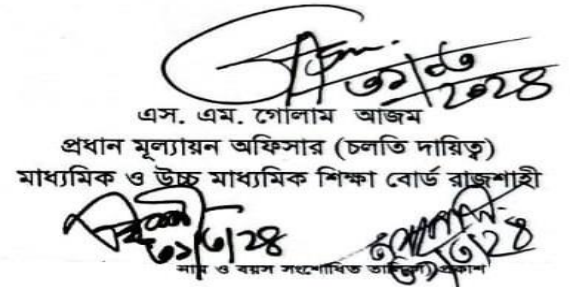 ৩১/৩
২০২৪
এস. এম. গোলাম আজম
প্রধান মূল্যায়ন অফিসার (চলতি দায়িত্ব)
মাধ্যমিক ও উচ্চ মাধ্যমিক শিক্ষা বোর্ড রাজশাহী
৩১/৩/২৪ ৩১/৩/২৪
নাম ও বয়স সংশোধিত তালিকা প্রকাশ